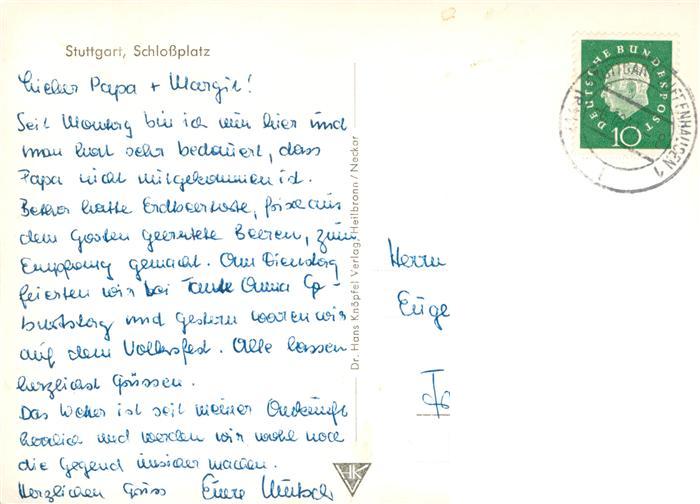 Stuttgart, Schloßplatz
Lieber Papa + Margit!
Seit Montag bin ich nun hier und
man hat sehr bedauert, dass
Papa nicht mitgekommen ist.
hatte Erdbeertorte, frisch aus
dem Garten geerntete Beeren, zum
Empfang gemacht. Am Dienstag
feierten wir bei Tante Anna Ge-
burtstag und gestern waren wir
auf dem Volksfest. Alle lassen
herzlichst Grüssen.
Das Wetter ist seit meiner Ankunft
herrlich und werden wir wohl noch
die Gegend unsicher machen.
Herzlichen Gruss Eure
Dr. Hans Knöpfel Verlag, Heilbronn / Neckar
HK
DEUTSCHE BUNDESPOST
10
Herrn
Euge